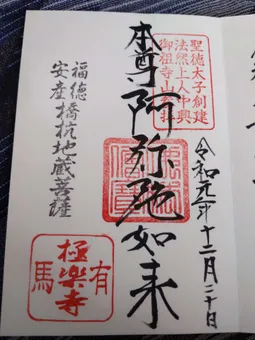 聖徳太子創建
法然上人中興
令和元年十二月三十日
本尊阿弥陀如来
福徳
安産
橋杭地蔵菩薩
有
極楽寺
馬